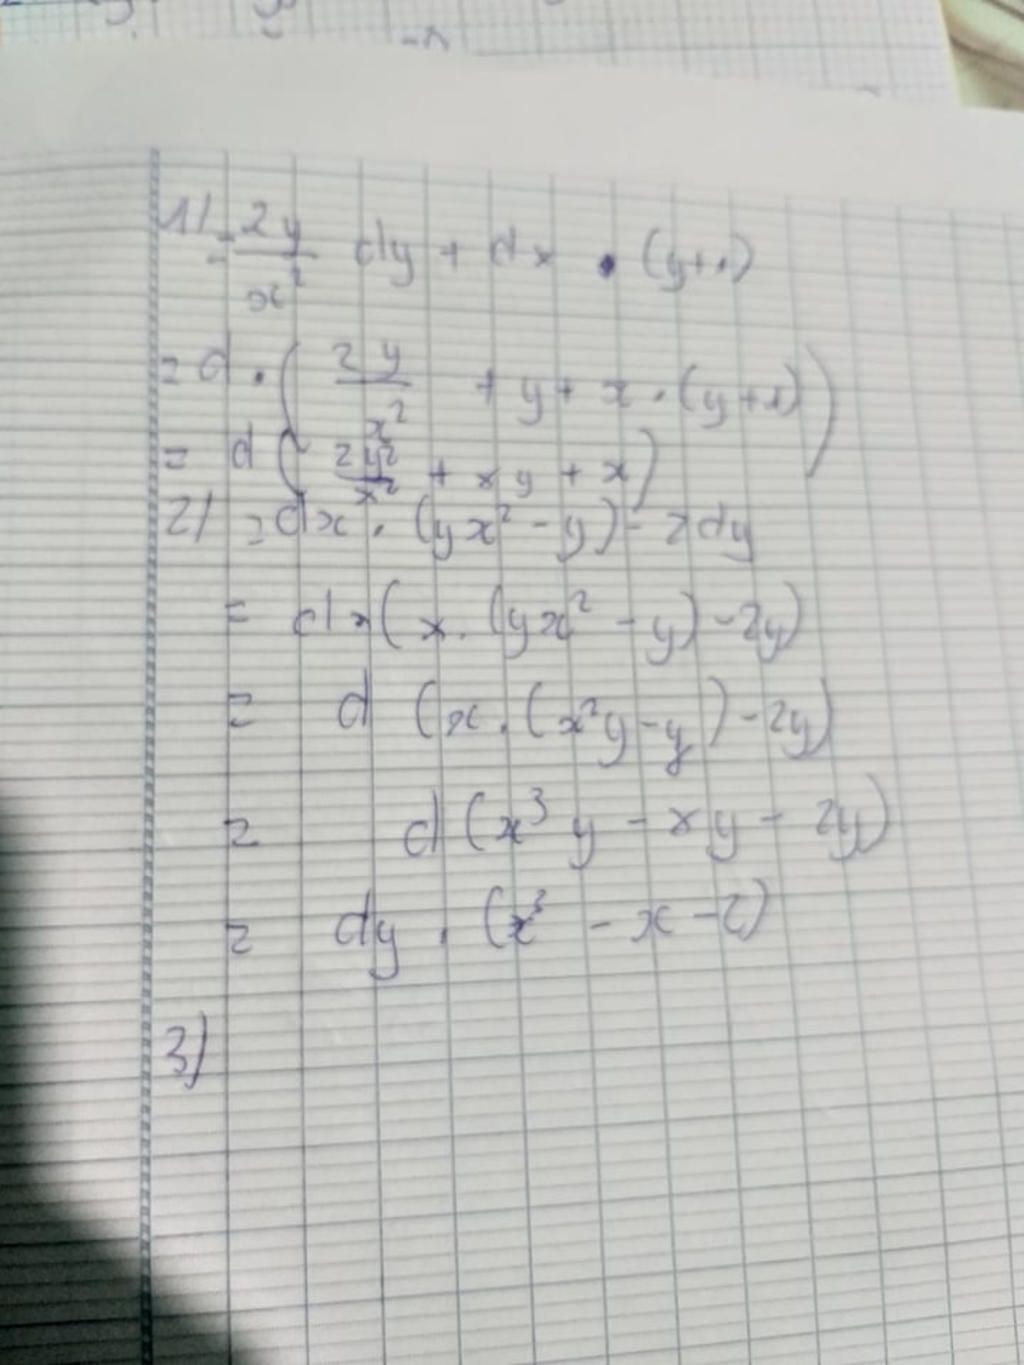 1) - 2y/x² dy + dx · (y+1)
= d · ( 2y/x² + y + x · (y+1) )
= d ( 2y²/x² + xy + x )
2) = dx · (yx² - y) - 2dy
= dx ( x · (yx² - y) - 2y )
= d ( x · (x²y - y) - 2y )
= d ( x³y - xy - 2y )
= dy · (x³ - x - 2)
3)